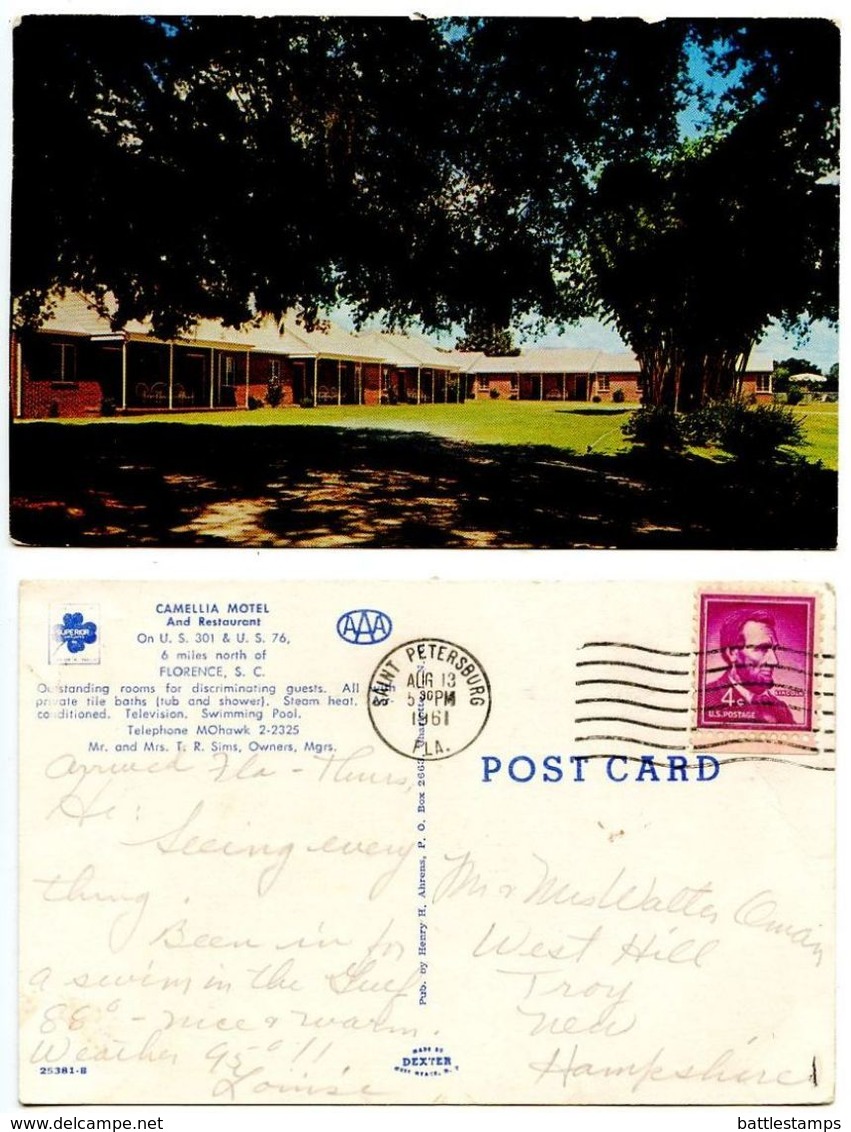 SUPERIOR
CAMELLIA MOTEL
And Restaurant
On U. S. 301 & U. S. 76,
6 miles north of
FLORENCE, S. C.
Outstanding rooms for discriminating guests. All
private tile baths (tub and shower). Steam heat.
conditioned. Television. Swimming Pool.
Telephone MOhawk 2-2325
Mr. and Mrs. T. R. Sims, Owners, Mgrs.
AAA
SAINT PETERSBURG
AUG 13
5 30 PM
1961
FLA.
4c
LINCOLN
U.S. POSTAGE
POST CARD
Arrived Fla - Thurs,
Hi:
Seeing every
thing.
Been in for
a swim in the Gulf
88° - nice & warm.
Weather 95°!!
Louise
Pub. by Henry H. Ahrens, P. O. Box
Mr & Mrs Walter
West Hill
Troy
New
Hampshire
25381-B
MADE BY
DEXTER
WEST NYACK, N. Y.
www.delcampe.net
battlestamps